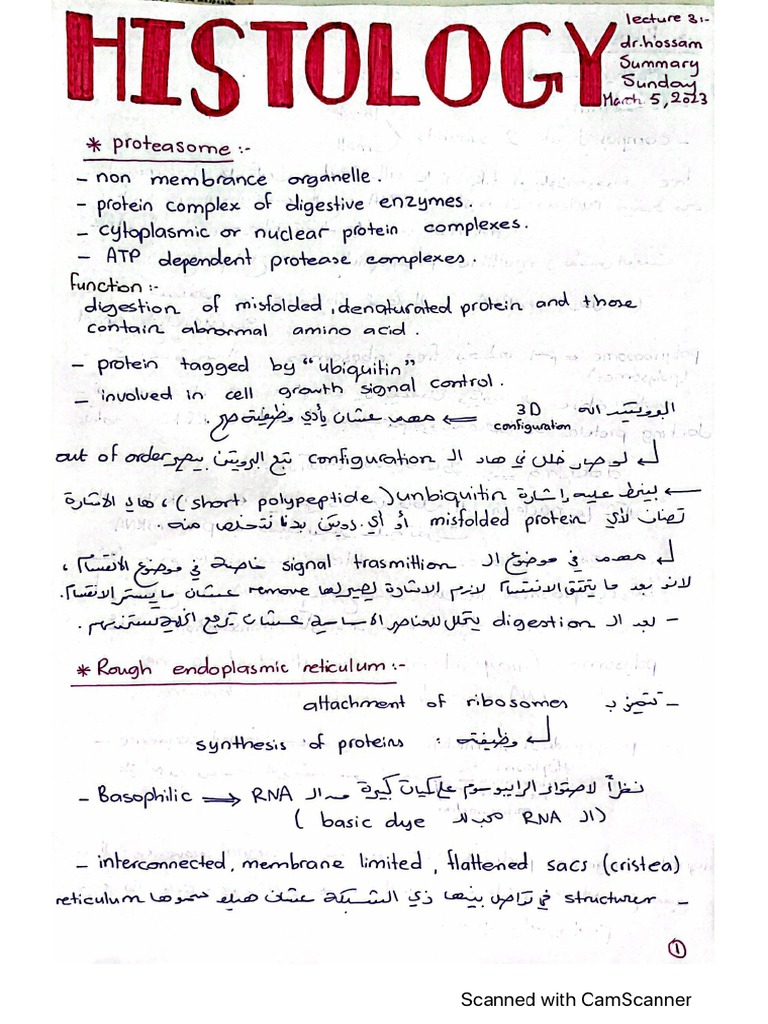 HISTOLOGY
lecture 3:-
dr.hossam
Summary
Sunday
March 5, 2023
* proteasome :-
- non membrance organelle.
- protein complex of digestive enzymes.
- cytoplasmic or nuclear protein complexes.
- ATP dependent protease complexes.
Function :-
digestion of misfolded, denaturated protein and those
contain abnormal amino acid.
- protein tagged by "ubiquitin"
- involved in cell growth signal control.
البروتين اله 3D configuration مهم عشان يأدي وظيفته صح.
لو صار خلل في هاد ال configuration تبع البروتين بصير out of order
بينحط عليه إشارة unbiquitin (short polypeptide)، هاي الاشارة
تضاف لأي misfolded protein أو أي بروتين بدنا نتخلص منه.
مهم في موضوع ال signal trasmittion خاصة في موضوع الانقسام،
لانو بعد ما يتحقق الانقسام لازم الاشارة يصير لها remove عشان ما يستمر الانقسام.
- بعد ال digestion يتحلل للعناصر الأساسية عشان ترجع الخلية تستخدمهم.
* Rough endoplasmic reticulum :-
- تتميز ب attachment of ribosomes
وظيفته : synthesis of proteins
- Basophilic ⟹ نظراً لاحتواء الرايبوسوم على كميات كبيرة من ال RNA
(ال RNA محب لل basic dye)
- interconnected, membrane limited, flattened sacs (cristea)
- structurer في تواصل بينها زي الشبكة عشان هيك سموها reticulum
1
Scanned with CamScanner